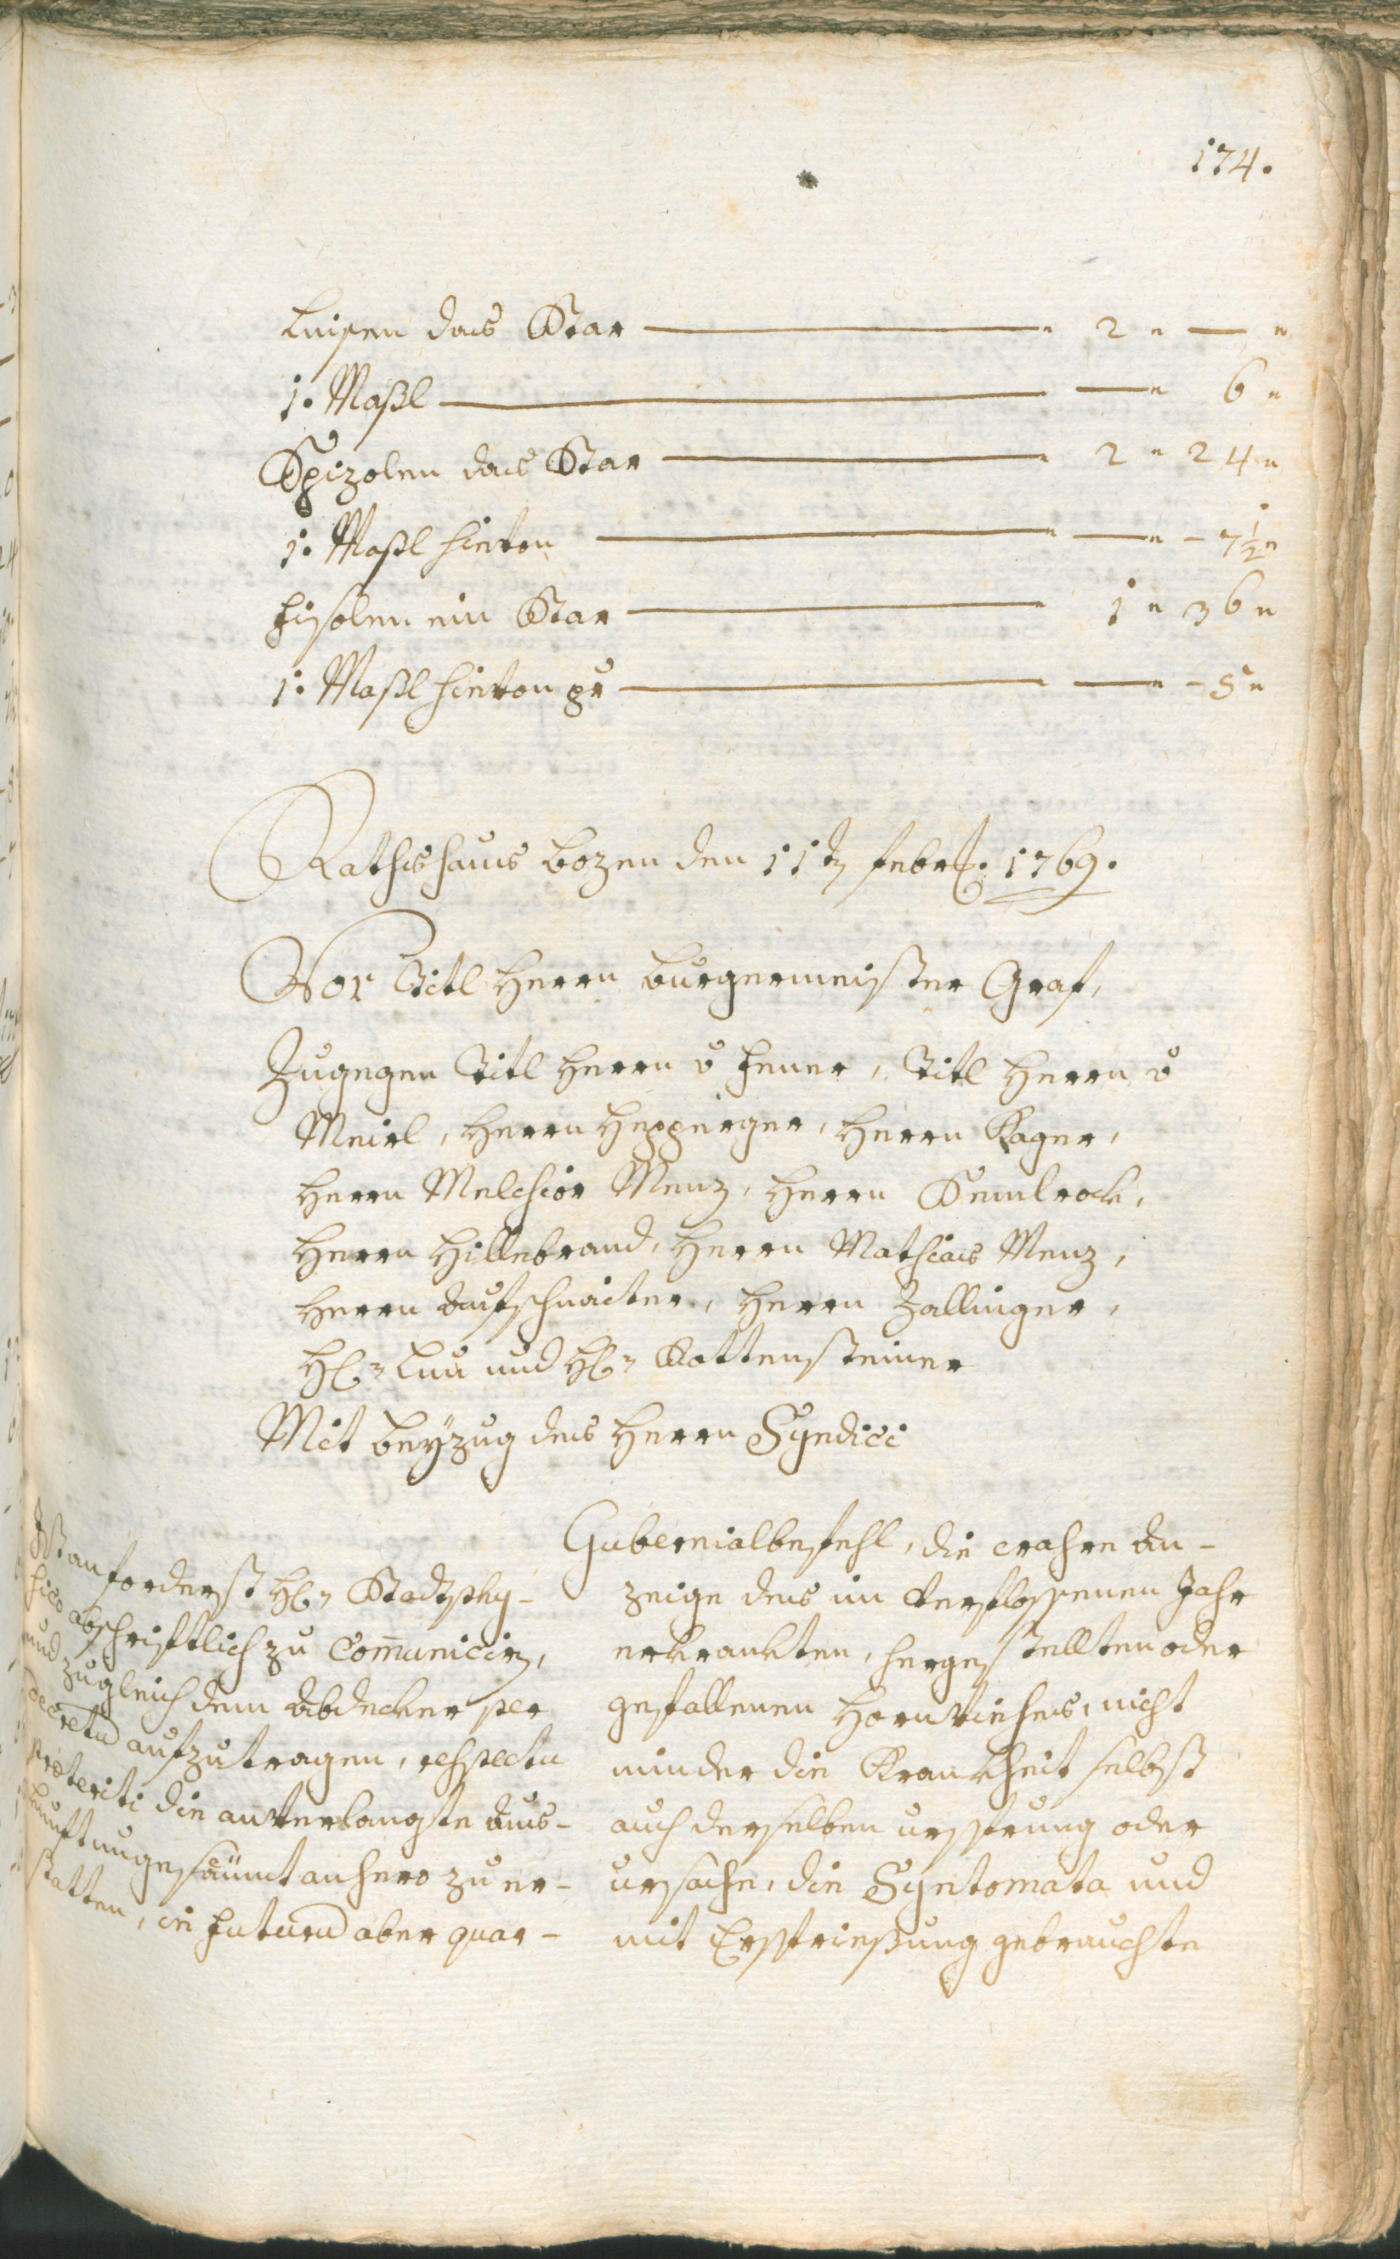 174.
Linsen das Star — 2 " — "
1. Maßl — — " 6 "
Spizolen das Star — 2 " 24 "
1. Maßl hievon — — " - 7 1/2 "
Fisolen ein Star — 1 " 36 "
1. Maßl hievon pr — — " - 5 "
Rathshaus Bozen den 11tn Febr: 1769.
Vor Titl Herrn Burgermeister Graf,
Zugegen Titl Herrn v Fener, Titl Herrn v
Meirl, Herrn Hepperger, Herrn Kager,
Herrn Melchior Menz, Herrn Kemlrock,
Herrn Hillebrand, Herrn Mathias Menz,
Herrn Aufschnaiter, Herrn Zallinger,
H: Luu und H: Rottensteiner
Mit Beyzug des Herrn Syndici
Gubernialbefehl, die wahre An-
zeige des im verflossenen Jahr
erkrankten, hergestellten oder
gefallenen Hornviehes, nicht
minder die Krankheit selbst
auch derselben ursprung oder
ursache, die Syntomata und
mit Ersprießung gebrauchte
Ist anforderst H: Stadtphy-
sico abschriftlich zu Comunicirn,
und zugleich dem Abdecker per
decretum aufzutragen, respectu
praeteriti die anverlangte Aus-
kunft ungesäumt anhero zu er-
statten, in futurum aber quar-